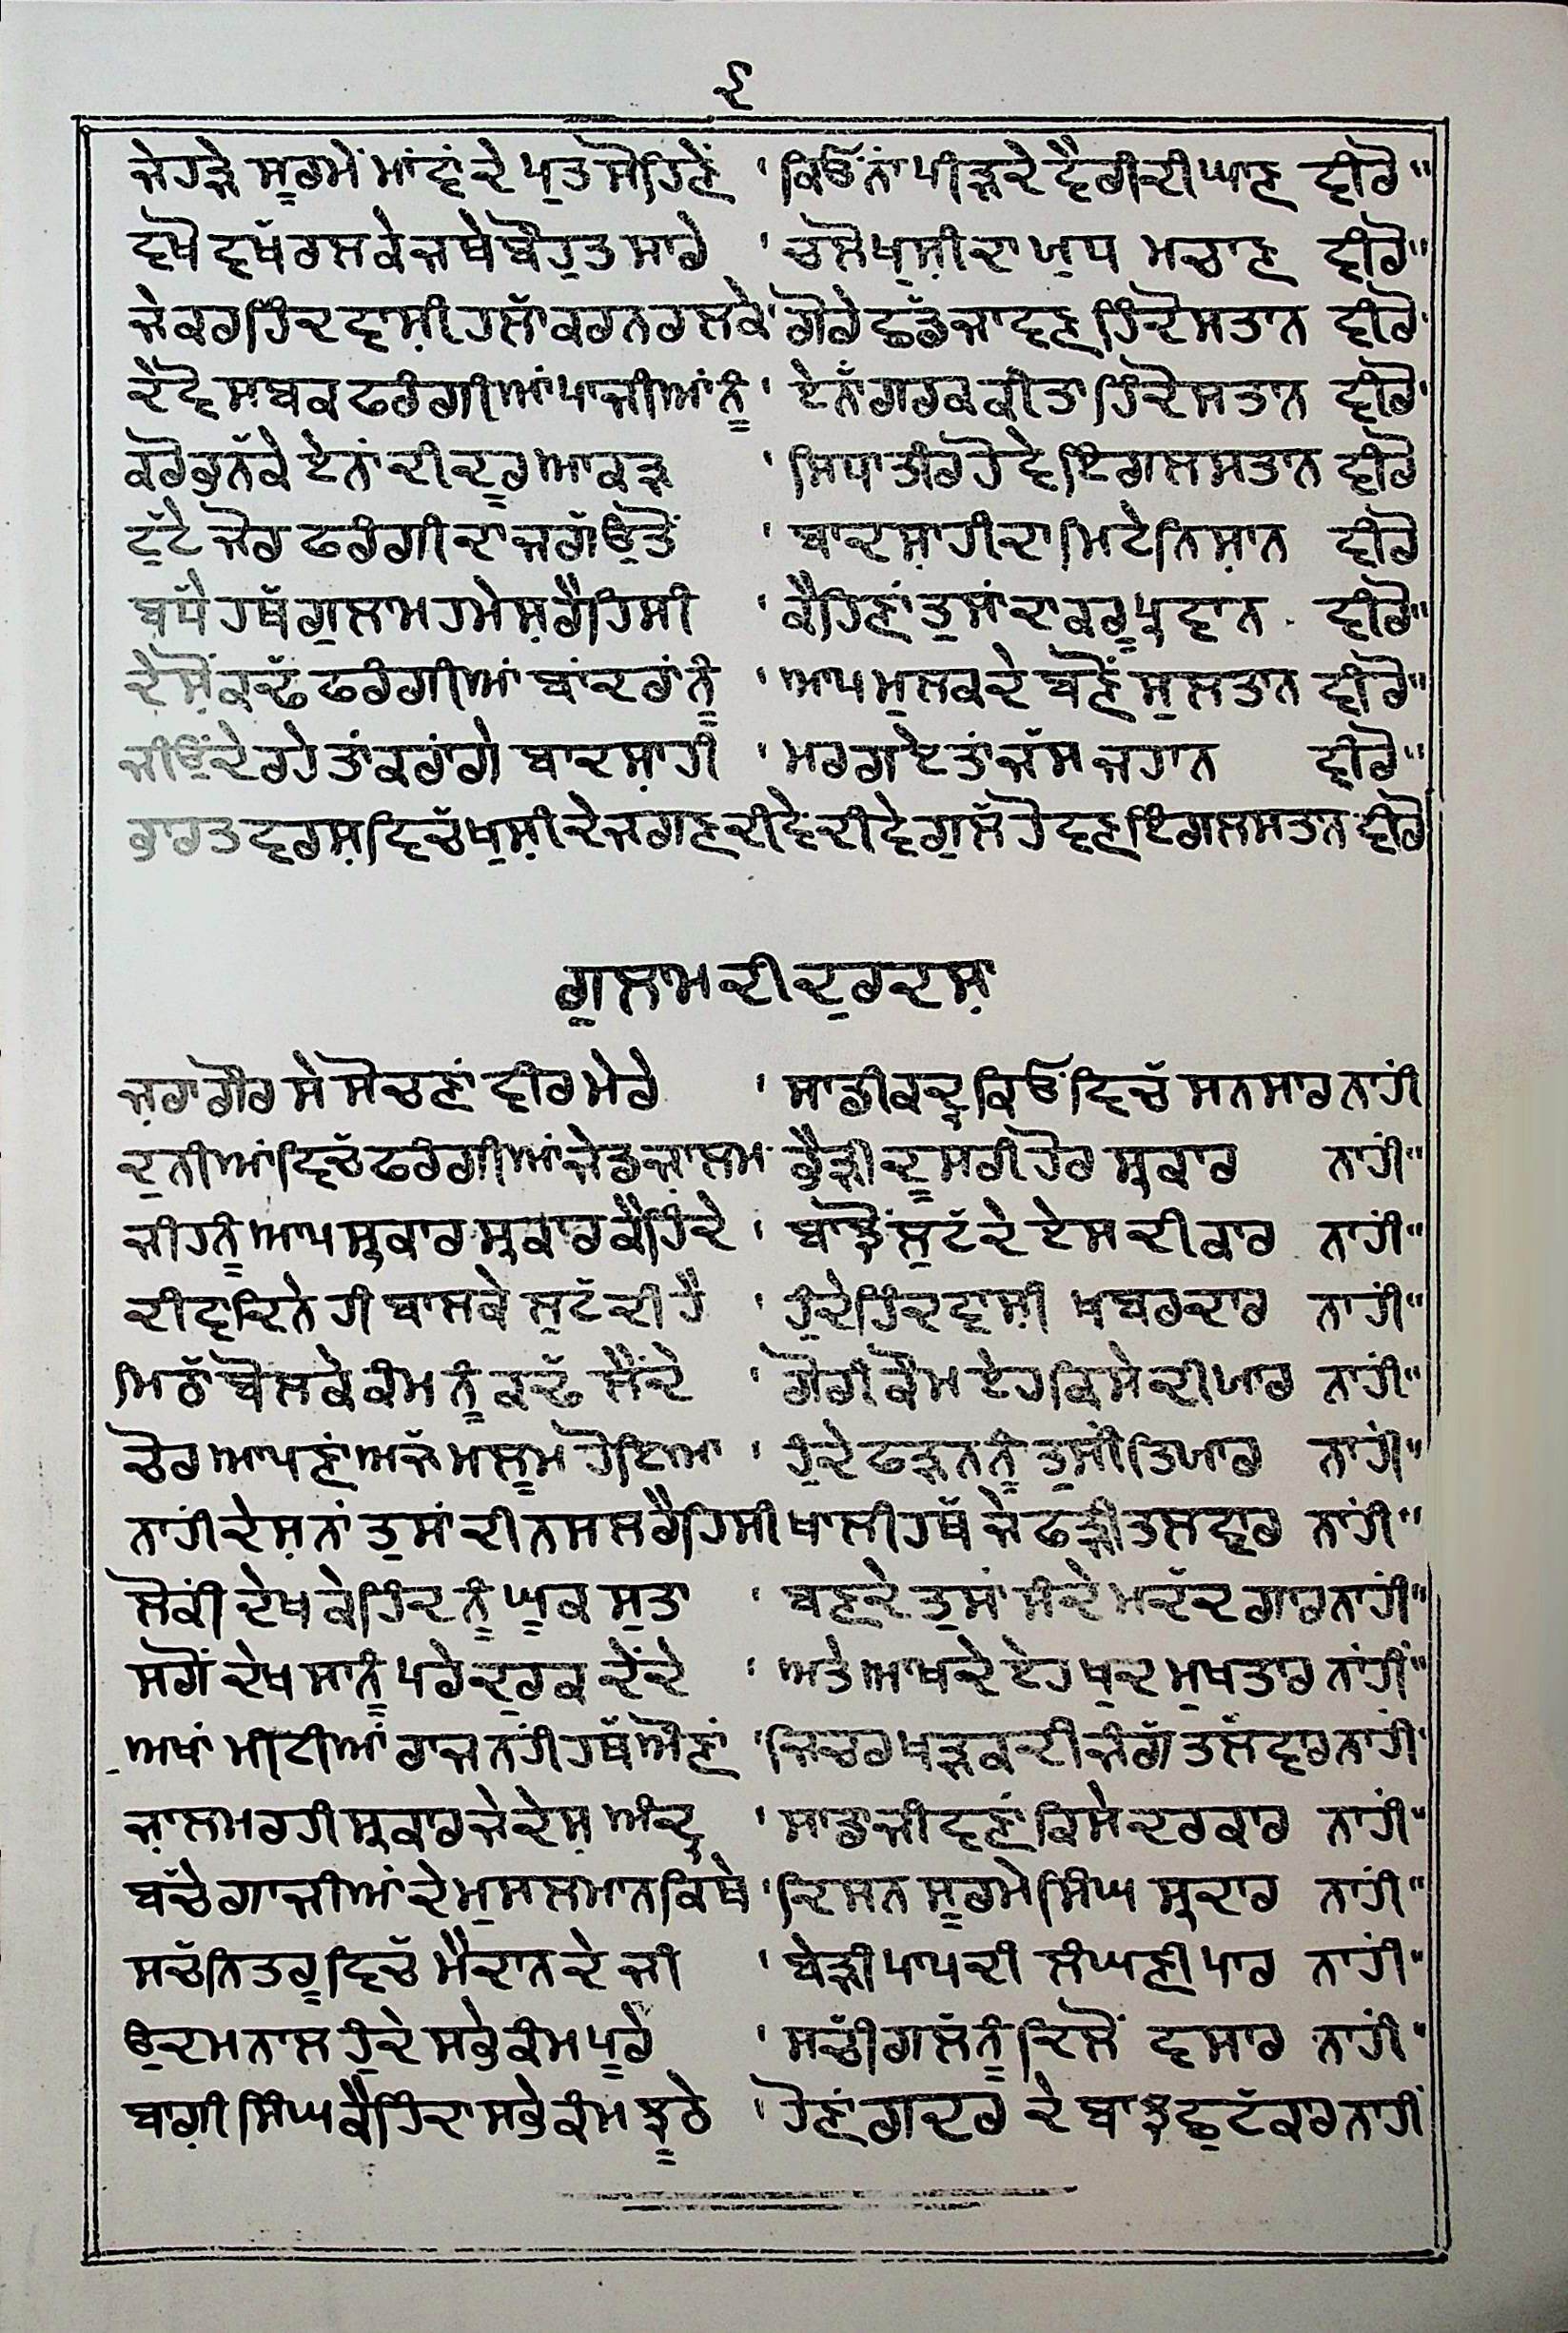 ੬
ਜੇਹੜੇ ਸੂਰਮੇਂ ਮਾਂਵਾਂ ਦੇ ਪੁਤ ਸੋਹਿਣੇਂ ' ਕਿਓਂ ਨਾਂ ਪੀੜਦੇ ਵੈਰੀ ਦੀ ਘਾਣ ਵੀਰੋ"
ਵਖੋ ਵਖੱ ਰਲਕੇ ਜਥੇ ਬੌਹੁਤ ਸਾਰੇ ' ਚਲੋ ਖੁਸ਼ੀ ਦਾ ਖੁਪ ਮਚਾਣ ਵੀਰੋ"
ਜੇਕਰ ਹਿੰਦ ਵਾਸ਼ੀ ਹਲਾੱ ਕਰਨ ਰਲਕੇ ' ਗੋਰੇ ਛਡੱ ਜਾਵਣ ਹਿੰਦੋਸਤਾਨ ਵੀਰੋ'
ਦੇਵੋ ਸਬਕ ਫਰੰਗੀਆਂ ਪਾਜੀਆਂ ਨੂੰ ' ਏਨਾਂ ਗਰਕ ਕੀਤਾ ਹਿੰਦੋਸਤਾਨ ਵੀਰੋ'
ਕਰੋ ਭੁਨੱਕੇ ਏਨਾਂ ਦੀ ਦੂਰ ਆਕੜ ' ਸਿਧਾ ਤੀਰ ਹੋਵੇ ਇੰਗਲਸਤਾਨ ਵੀਰੋ
ਟੁੱਟੇ ਜੋਰ ਫਰੰਗੀ ਦਾ ਜਗੱ ਉਤੋਂ ' ਬਾਦਸ਼ਾਹੀ ਦਾ ਮਿਟੇ ਨਿਸ਼ਾਨ ਵੀਰੋ
ਬੁਧੇ ਹਥੱ ਗੁਲਾਮ ਹਮੇਸ਼ ਰੈਹਿਸੀ ' ਕੈਹਿਣਾਂ ਤੁਸਾਂ ਦਾ ਕਰੂ ਪ੍ਰਵਾਨ ਵੀਰੋ"
ਦੇਸੋਂ ਕਢੱ ਫਰੰਗੀਆਂ ਬਾਂਦਰਾਂ ਨੂੰ ' ਆਪ ਮੁਲਕ ਦੇ ਬਣੋਂ ਸੁਲਤਾਨ ਵੀਰੋ"
ਜੀਉਂਦੇ ਰਹੇ ਤਾਂ ਕਰਾਂਗੇ ਬਾਦਸ਼ਾਹੀ ' ਮਰਗਏ ਤਾਂ ਜੱਸ ਜਹਾਨ ਵੀਰੋ"
ਭਾਰਤ ਵਰਸ਼ ਵਿਚੱ ਖੁਸ਼ੀ ਦੇ ਜਗਣ ਦੀਵੇ ਦੀਵੇ ਗੁਲੱ ਹੋਵਣ ਇੰਗਲਸਤਾਨ ਵੀਰੋ
ਗੁਲਾਮ ਦੀ ਦੁਰਦਸ਼ਾ
ਜ਼ਰਾ ਗੌਰ ਸੇ ਸੋਚਣਾਂ ਵੀਰ ਮੇਰੇ ' ਸਾਡੀ ਕਦ੍ਰ ਕਿਓਂ ਵਿਚੱ ਸਨਸਾਰ ਨਾਹੀਂ
ਦੁਨੀਆਂ ਵਿਚੱ ਫਰੰਗੀਆਂ ਜੇਡ ਜ਼ਾਲਮ ਭੈੜੀ ਦੂਸਰੀ ਹੋਰ ਸ੍ਰਕਾਰ ਨਾਹੀਂ"
ਜੀਹਨੂੰ ਆਪ ਸ੍ਰਕਾਰ ਸ੍ਰਕਾਰ ਕੈਹਿੰਦੇ ' ਬਾਝੋਂ ਲੁਟੱ ਦੇ ਏਸ ਦੀ ਕਾਰ ਨਾਹੀਂ"
ਦੀਵਾ ਦਿਨੇ ਹੀ ਬਾਲਕੇ ਲੁਟੱਦੀ ਹੈ ' ਹੁੰਦੇ ਹਿੰਦਵਾਸ਼ੀ ਖਬਰਦਾਰ ਨਾਹੀਂ"
ਮਿਠੱ ਬੋਲਕੇ ਕੰਮ ਨੂੰ ਕਢੱ ਲੈਂਦੇ ' ਗੋਰੀ ਕੌਮ ਏਹ ਕਿਸੇ ਦੀ ਯਾਰ ਨਾਹੀਂ"
ਚੋਰ ਆਪਣਾਂ ਅਜੱ ਮਲੂਮ ਹੋਇਆ ' ਹੁੰਦੇ ਫੜਨ ਨੂੰ ਤੁਸੀਂ ਤਿਯਾਰ ਨਾਹੀਂ"
ਨਾਹੀਂ ਦੇਸ਼ ਨਾਂ ਤੁਸਾਂ ਦੀ ਨਸਲ ਰੈਹਿਸੀ ਖਾਲੀ ਹਥੱ ਜੇ ਫੜੀ ਤਲਵਾਰ ਨਾਂਹੀਂ"
ਲੋਕੀਂ ਦੇਖਕੇ ਹਿੰਦ ਨੂੰ ਘੂਕ ਸੁਤਾ ' ਬਣਦੇ ਤੁਸਾਂ ਸੰਦੇ ਮਦੱਦਗਾਰ ਨਾਹੀਂ"
ਸਗੋਂ ਦੇਖ ਸਾਨੂੰ ਪਰੇ ਦੁਰਕ ਦੇਂਦੇ ' ਅਤੇ ਆਖਦੇ ਏਹ ਖੁਦ ਮੁਖਤਾਰ ਨਾਂਹੀਂ"
ਅਖਾਂ ਮੀਟੀਆਂ ਰਾਜ ਨਹੀਂ ਹਥੱ ਔਣਾਂ ' ਜਿਚਰ ਖੜਕਦੀ ਜੰਗੱ ਤਲੱਵਾਰ ਨਾਹੀਂ'
ਜ਼ਾਲਮ ਰਹੀ ਸ੍ਰਕਾਰ ਜੇ ਦੇਸ਼ ਅੰਦ੍ਰ ' ਸਾਡਾ ਜੀਵਣਾਂ ਕਿਸੇ ਦਰਕਾਰ ਨਾਹੀਂ"
ਬੱਚੇ ਗਾਜੀਆਂ ਦੇ ਮੁਸਲਮਾਨ ਕਿਥੇ ' ਦਿਸਨ ਸੂਰਮੇ ਸਿੰਘ ਸ੍ਰਦਾਰ ਨਾਹੀਂ"
ਸਚੱ ਨਿਤਰੂ ਵਿਚੱ ਮੈਦਾਨ ਦੇ ਜੀ ' ਬੇੜੀ ਪਾਪ ਦੀ ਲੰਘਣੀ ਪਾਰ ਨਾਹੀਂ"
ਉਦਮ ਨਾਲ ਹੁੰਦੇ ਸਭੇ ਕੰਮ ਪੂਰੇ ' ਸਚੀੱ ਗਲੱ ਨੂੰ ਦਿਲੋਂ ਵਸਾਰ ਨਾਹੀਂ"
ਬਾਗੀ ਸਿੰਘ ਕੈਹਿੰਦਾ ਸਭੇ ਕੰਮ ਝੂਠੇ ' ਹੋਣਾਂ ਗਦਰ ਦੇ ਬਾਝ ਛੁਟੱਕਾਰ ਨਾਹੀਂ